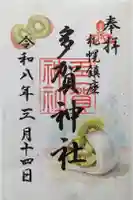 奉拝
札幌鎮座
多賀神社
令和八年三月十四日